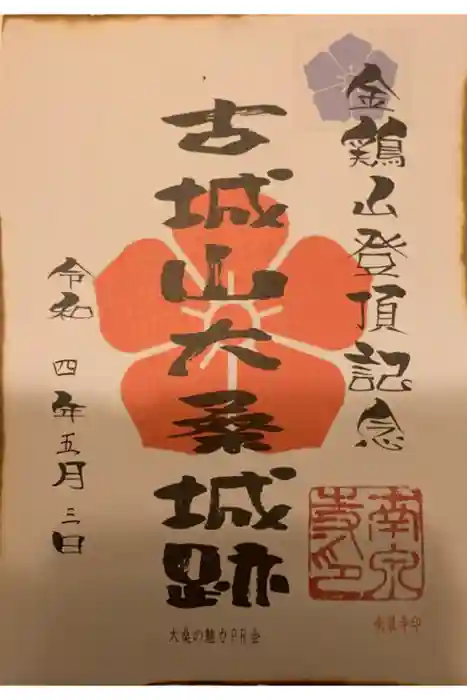 金鶏山登頂記念
古城山大桑城跡
令和 四年五月三日
南泉寺印
大桑の魅力PR会
南泉寺印